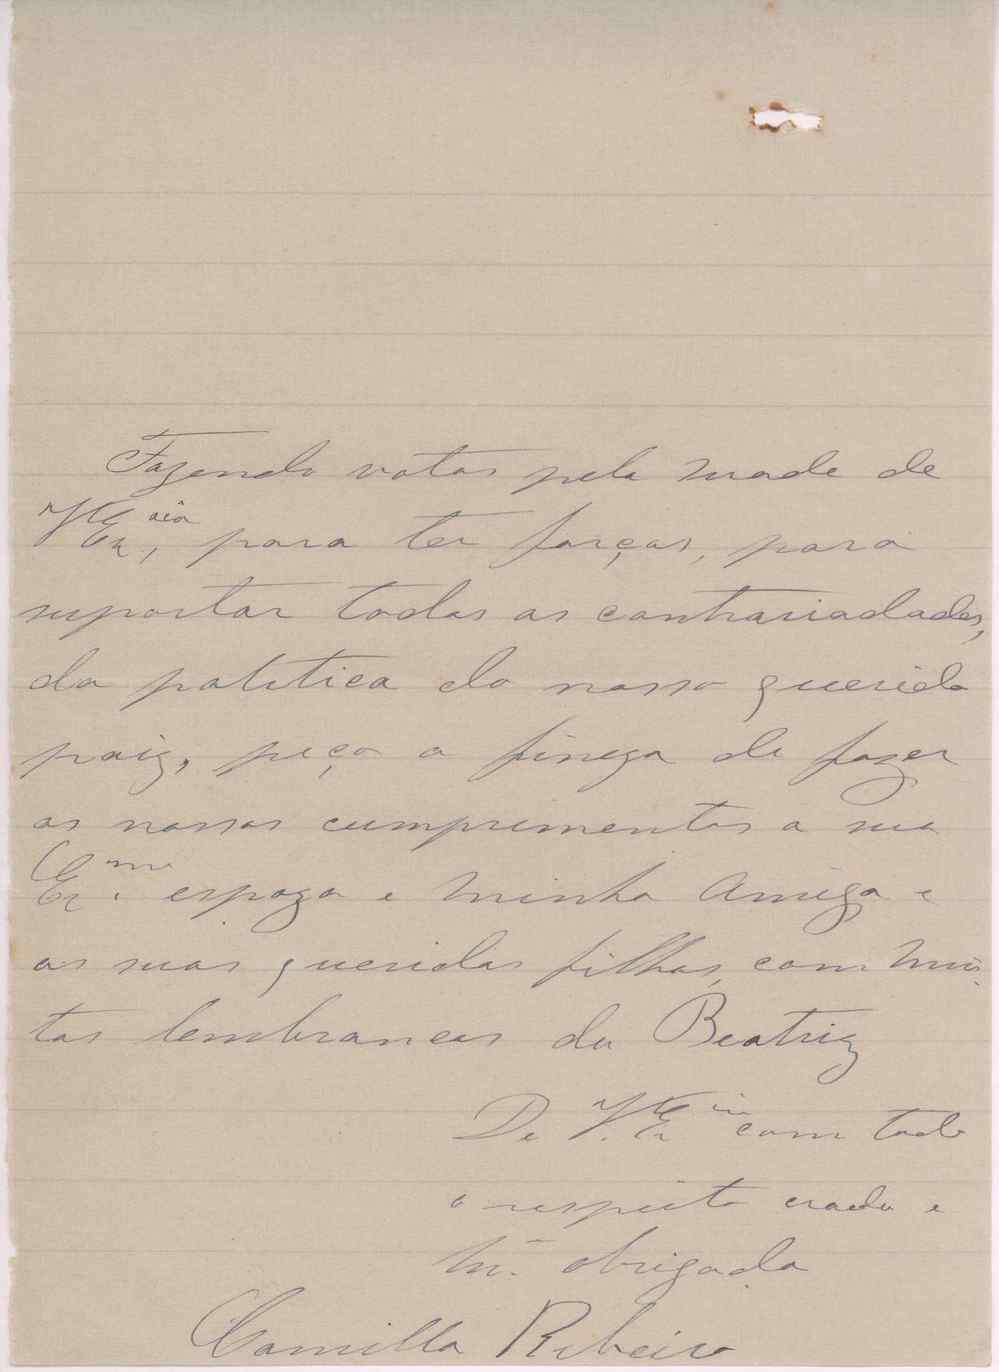 Fazendo votos pela suade de
V Ex.cia, para ter forças, para
suportar todas as contrariadades,
da politica do nosso querido
paiz, peço a fineza de fazer
os nossos cumprimentos a sua
Ex.ma espoza e minha Amiga e
as suas queridas filhas, com mui-
tas lembrancas da Beatriz
De V. Ex.cia com todo
o respeito criada e
m.to obrigada
Camilla Ribeiro